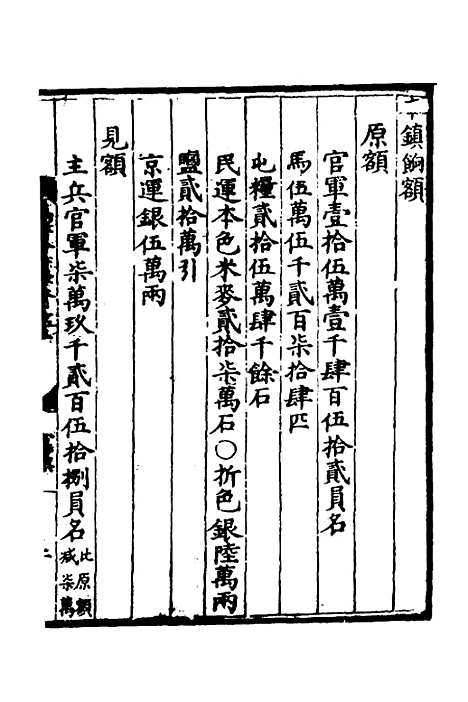 鎮餉額
原額
官軍壹拾伍萬壹千肆百伍拾貳員名
馬伍萬伍千貳百柒拾肆匹
屯糧貳拾伍萬肆千餘石
民運本色米麥貳拾柒萬石○折色銀陸萬兩
鹽貳拾萬引
京運銀伍萬兩
見額
主兵官軍柒萬玖千貳百伍拾捌員名比原額
減柒萬